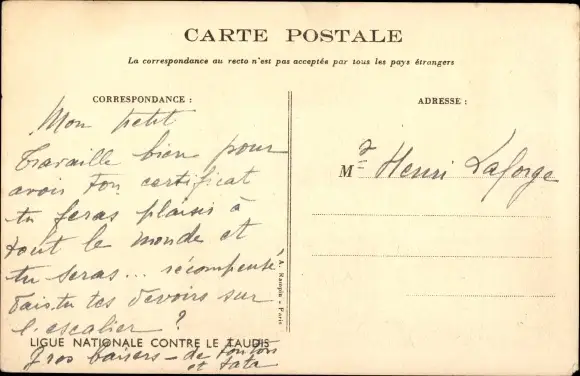 CARTE POSTALE
La correspondance au recto n'est pas acceptée par tous les pays étrangers
CORRESPONDANCE :
Mon petit
Travaille bien pour
avoir ton certificat
tu feras plaisir à
tout le monde et
tu seras... récompensé
Fais-tu tes devoirs sur
l'escalier ?
Gros baisers - de tonton
et tata
LIGUE NATIONALE CONTRE LE TAUDIS
A. Rampin - Paris
ADRESSE :
Mr Henri Laforge